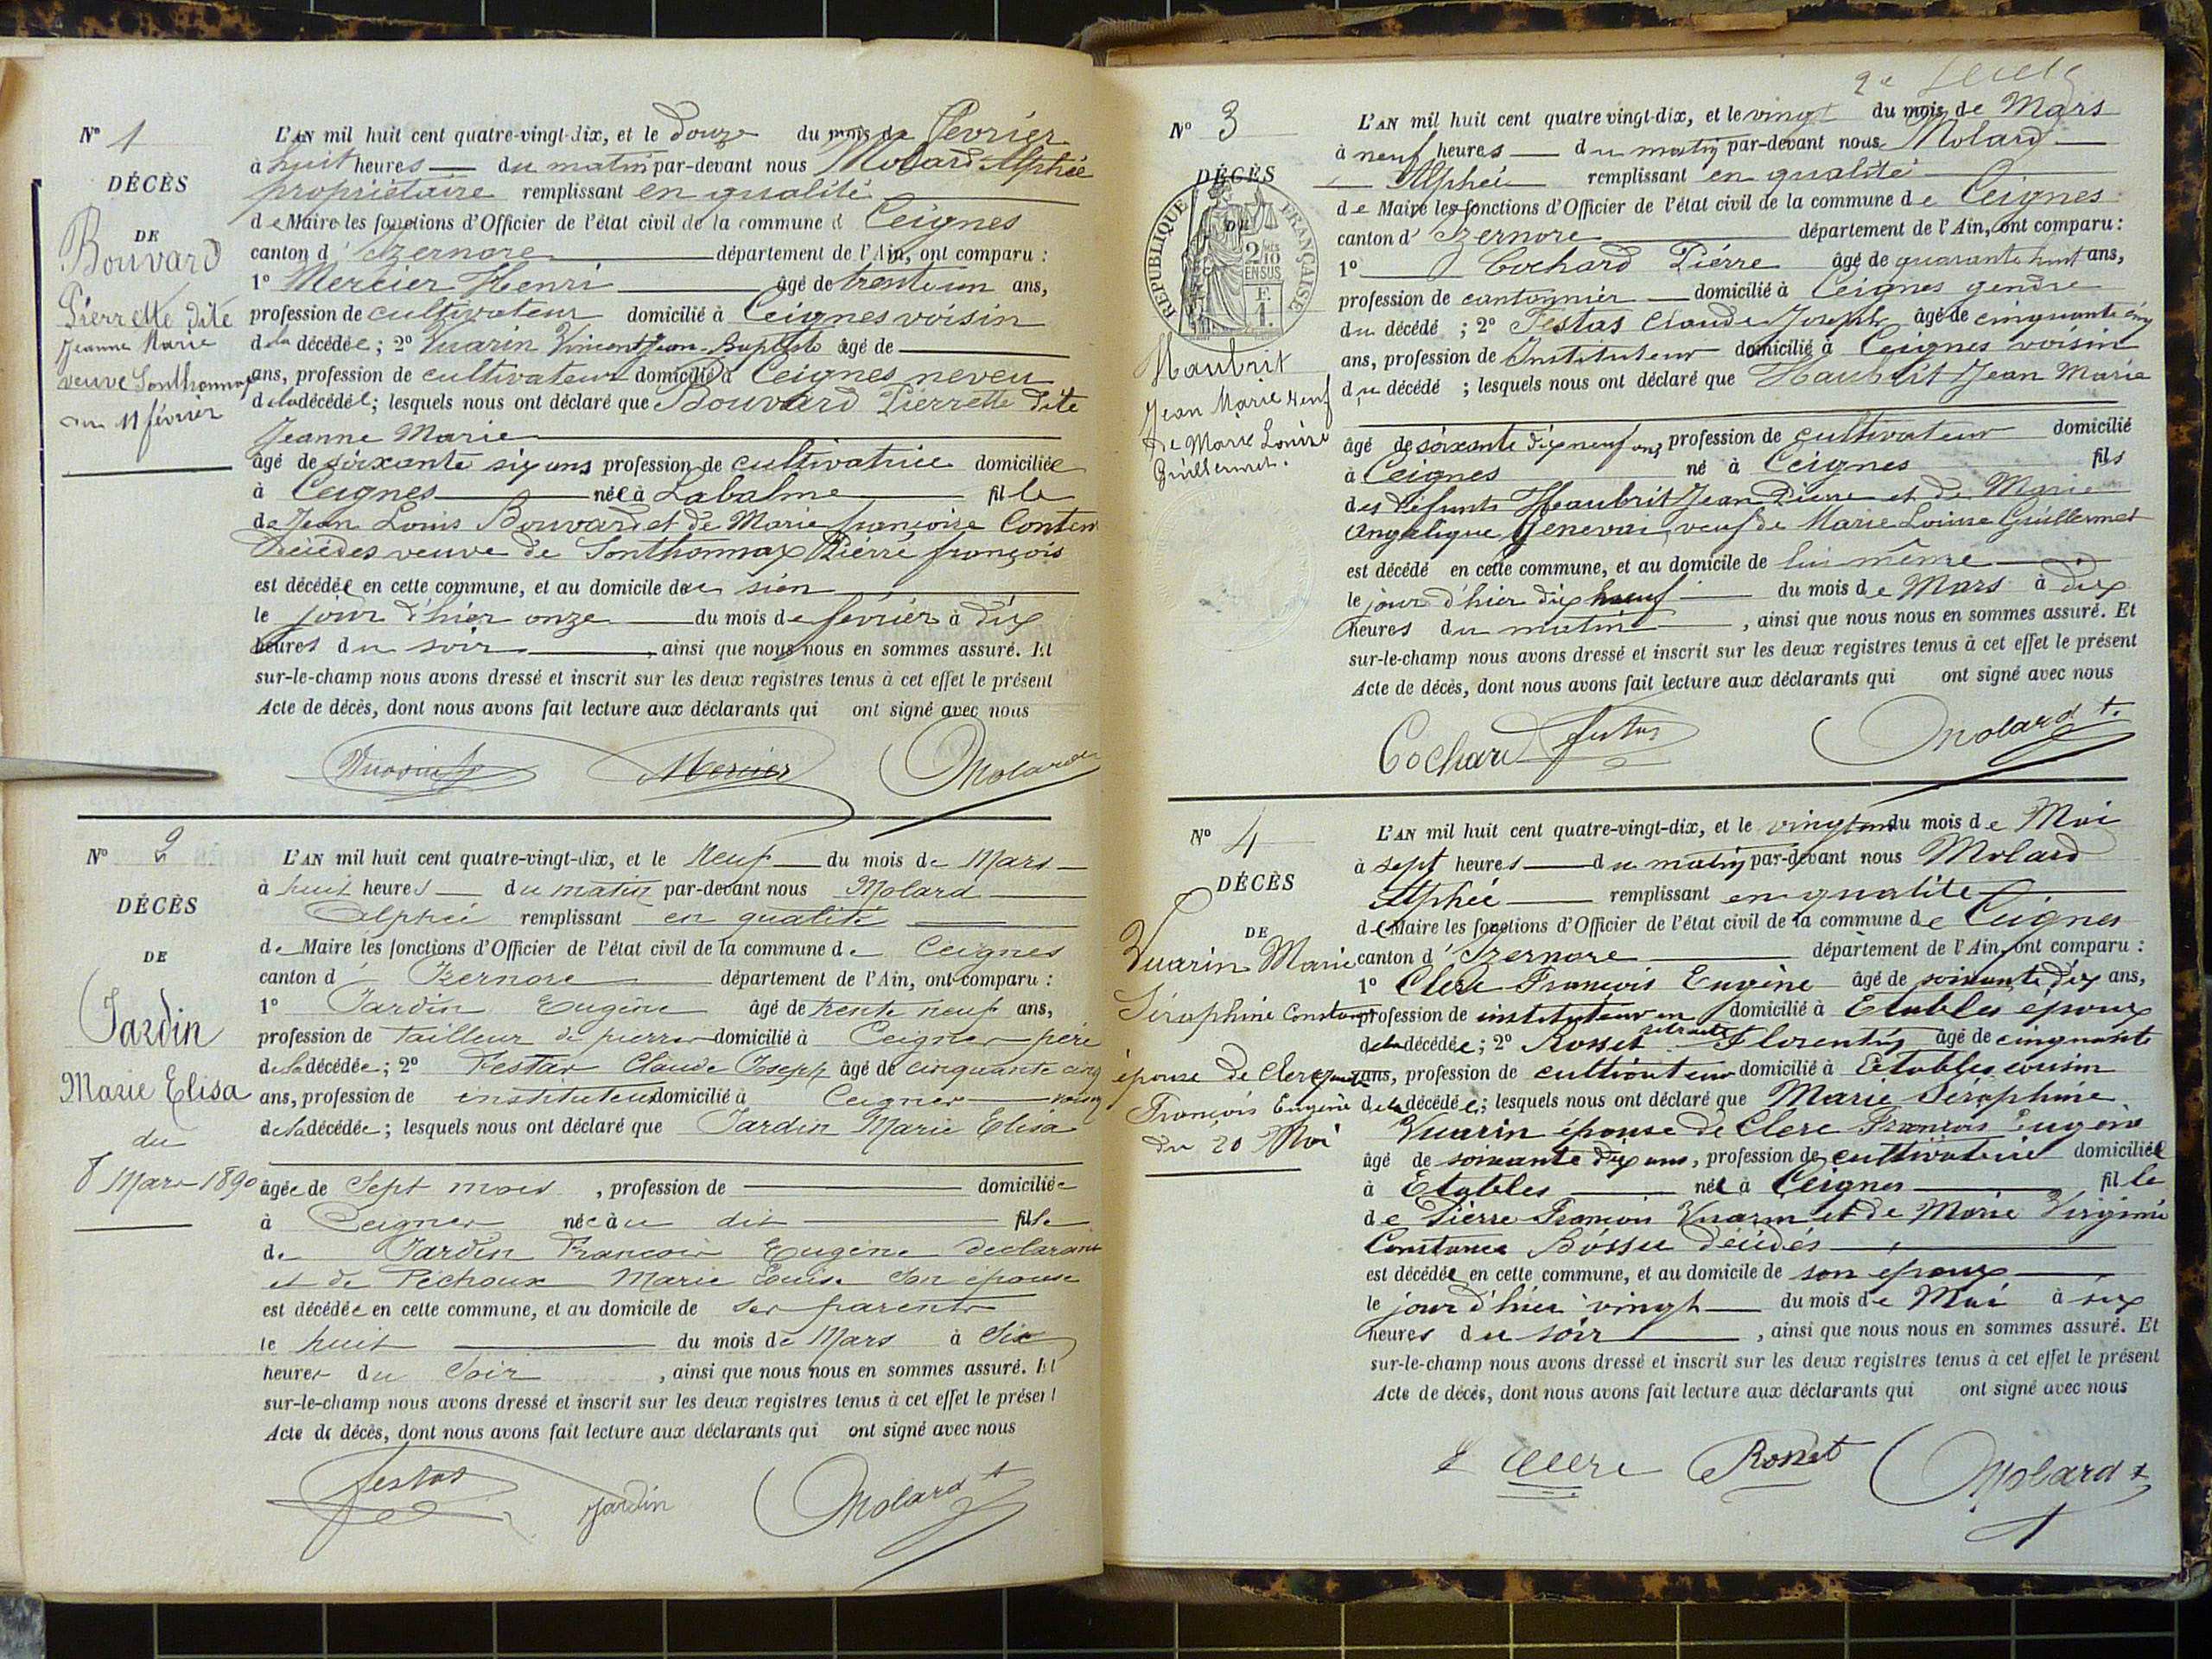 N° 1
DÉCÈS
DE
Bouvard
Pierrette dite
Jeanne Marie
veuve Sonthonnax
du 11 février
L'AN mil huit cent quatre-vingt-dix, et le douze du mois de février
à huit heures du matin par-devant nous Molard Alphée
propriétaire remplissant en qualité
de Maire les fonctions d'Officier de l'état civil de la commune d Ceignes
canton d'Izernore département de l'Ain, ont comparu :
1° Mercier Henri âgé de trente un ans,
profession de cultivateur domicilié à Ceignes voisin
de la décédée ; 2° Vuarin Vincent Jean-Baptiste âgé de
ans, profession de cultivateur domicilié à Ceignes neveu
de la décédée ; lesquels nous ont déclaré que Bouvard Pierrette dite
Jeanne Marie
âgé de soixante six ans profession de cultivatrice domiciliée
à Ceignes née à Labalme fille
de Jean Louis Bouvard et de Marie françoise Conten
décédés veuve de Sonthonnax Pierre françois
est décédée en cette commune, et au domicile de sien
le jour d'hier onze du mois de février à dix
heures du soir , ainsi que nous nous en sommes assuré. Et
sur-le-champ nous avons dressé et inscrit sur les deux registres tenus à cet effet le présent
Acte de décès, dont nous avons fait lecture aux déclarants qui ont signé avec nous
Mercier Molard
N° 2
DÉCÈS
DE
Jardin
Marie Elisa
du
8 Mars 1890
L'AN mil huit cent quatre-vingt-dix, et le Neuf du mois de Mars
à huit heures du matin par-devant nous Molard
Alphée remplissant en qualité
de Maire les fonctions d'Officier de l'état civil de la commune de Ceignes
canton d' Izernore département de l'Ain, ont comparu :
1° Jardin Eugène âgé de trente neuf ans,
profession de tailleur de pierres domicilié à Ceignes père
de la décédée ; 2° Festas Claude Joseph âgé de cinquante cinq
ans, profession de instituteur domicilié à Ceignes voisin
de la décédée ; lesquels nous ont déclaré que Jardin Marie Elisa
âgée de Sept mois , profession de domiciliée
à Ceignes née au dit fille
de Jardin François Eugène déclarant
et de Péchoux Marie Louise son épouse
est décédée en cette commune, et au domicile de ses parents
le huit du mois de Mars à Six
heures du Soir , ainsi que nous nous en sommes assuré. Et
sur-le-champ nous avons dressé et inscrit sur les deux registres tenus à cet effet le présent
Acte de décès, dont nous avons fait lecture aux déclarants qui ont signé avec nous
festas Jardin Molard A
2e
N° 3
DÉCÈS
DE
RÉPUBLIQUE FRANÇAISE
2/10 EN SUS
F. 1.
Haubrit
Jean Marie veuf
de Marie Louise
Guillermet.
L'AN mil huit cent quatre-vingt-dix, et le vingt du mois de Mars
à neuf heures du matin par-devant nous Molard
Alphée remplissant en qualité
de Maire les fonctions d'Officier de l'état civil de la commune de Ceignes
canton d' Izernore département de l'Ain, ont comparu :
1° Cochard Pierre âgé de quarante huit ans,
profession de cantonnier domicilié à Ceignes gendre
du décédé ; 2° Festas Claude Joseph âgé de cinquante cinq
ans, profession de Instituteur domicilié à Ceignes voisin
du décédé ; lesquels nous ont déclaré que Haubrit Jean Marie
âgé de soixante dix neuf ans, profession de cultivateur domicilié
à Ceignes né à Ceignes fils
des défunts Haubrit Jean Pierre et de Marie
Angélique Genevai, veuf de Marie Louise Guillermet
est décédé en cette commune, et au domicile de lui même
le jour d'hier dix neuf du mois de Mars à dix
heures du matin , ainsi que nous nous en sommes assuré. Et
sur-le-champ nous avons dressé et inscrit sur les deux registres tenus à cet effet le présent
Acte de décès, dont nous avons fait lecture aux déclarants qui ont signé avec nous
Cochard festas Molard A.
N° 4
DÉCÈS
DE
Vuarin Marie
Séraphine Constance
épouse de Clerc
François Eugène
du 20 Mai
L'AN mil huit cent quatre-vingt-dix, et le vingt un du mois de Mai
à sept heures du matin par-devant nous Molard
Alphée remplissant en qualité
de Maire les fonctions d'Officier de l'état civil de la commune de Ceignes
canton d' Izernore département de l'Ain, ont comparu :
1° Clerc François Eugène âgé de soixante dix ans,
profession de instituteur en retraite domicilié à Etables époux
de la décédée ; 2° Rosset Florentin âgé de cinquante
ans, profession de cultivateur domicilié à Etables cousin
de la décédée ; lesquels nous ont déclaré que Marie Séraphine
Vuarin épouse de Clerc François Eugène
âgé de soixante dix ans, profession de cultivatrice domiciliée
à Etables née à Ceignes fille
de Pierre François Vuarin et de Marie Virginie
Constance Bossu décédés
est décédée en cette commune, et au domicile de son époux
le jour d'hier vingt du mois de Mai à six
heures du soir , ainsi que nous nous en sommes assuré. Et
sur-le-champ nous avons dressé et inscrit sur les deux registres tenus à cet effet le présent
Acte de décès, dont nous avons fait lecture aux déclarants qui ont signé avec nous
E Clerc Rosset Molard A